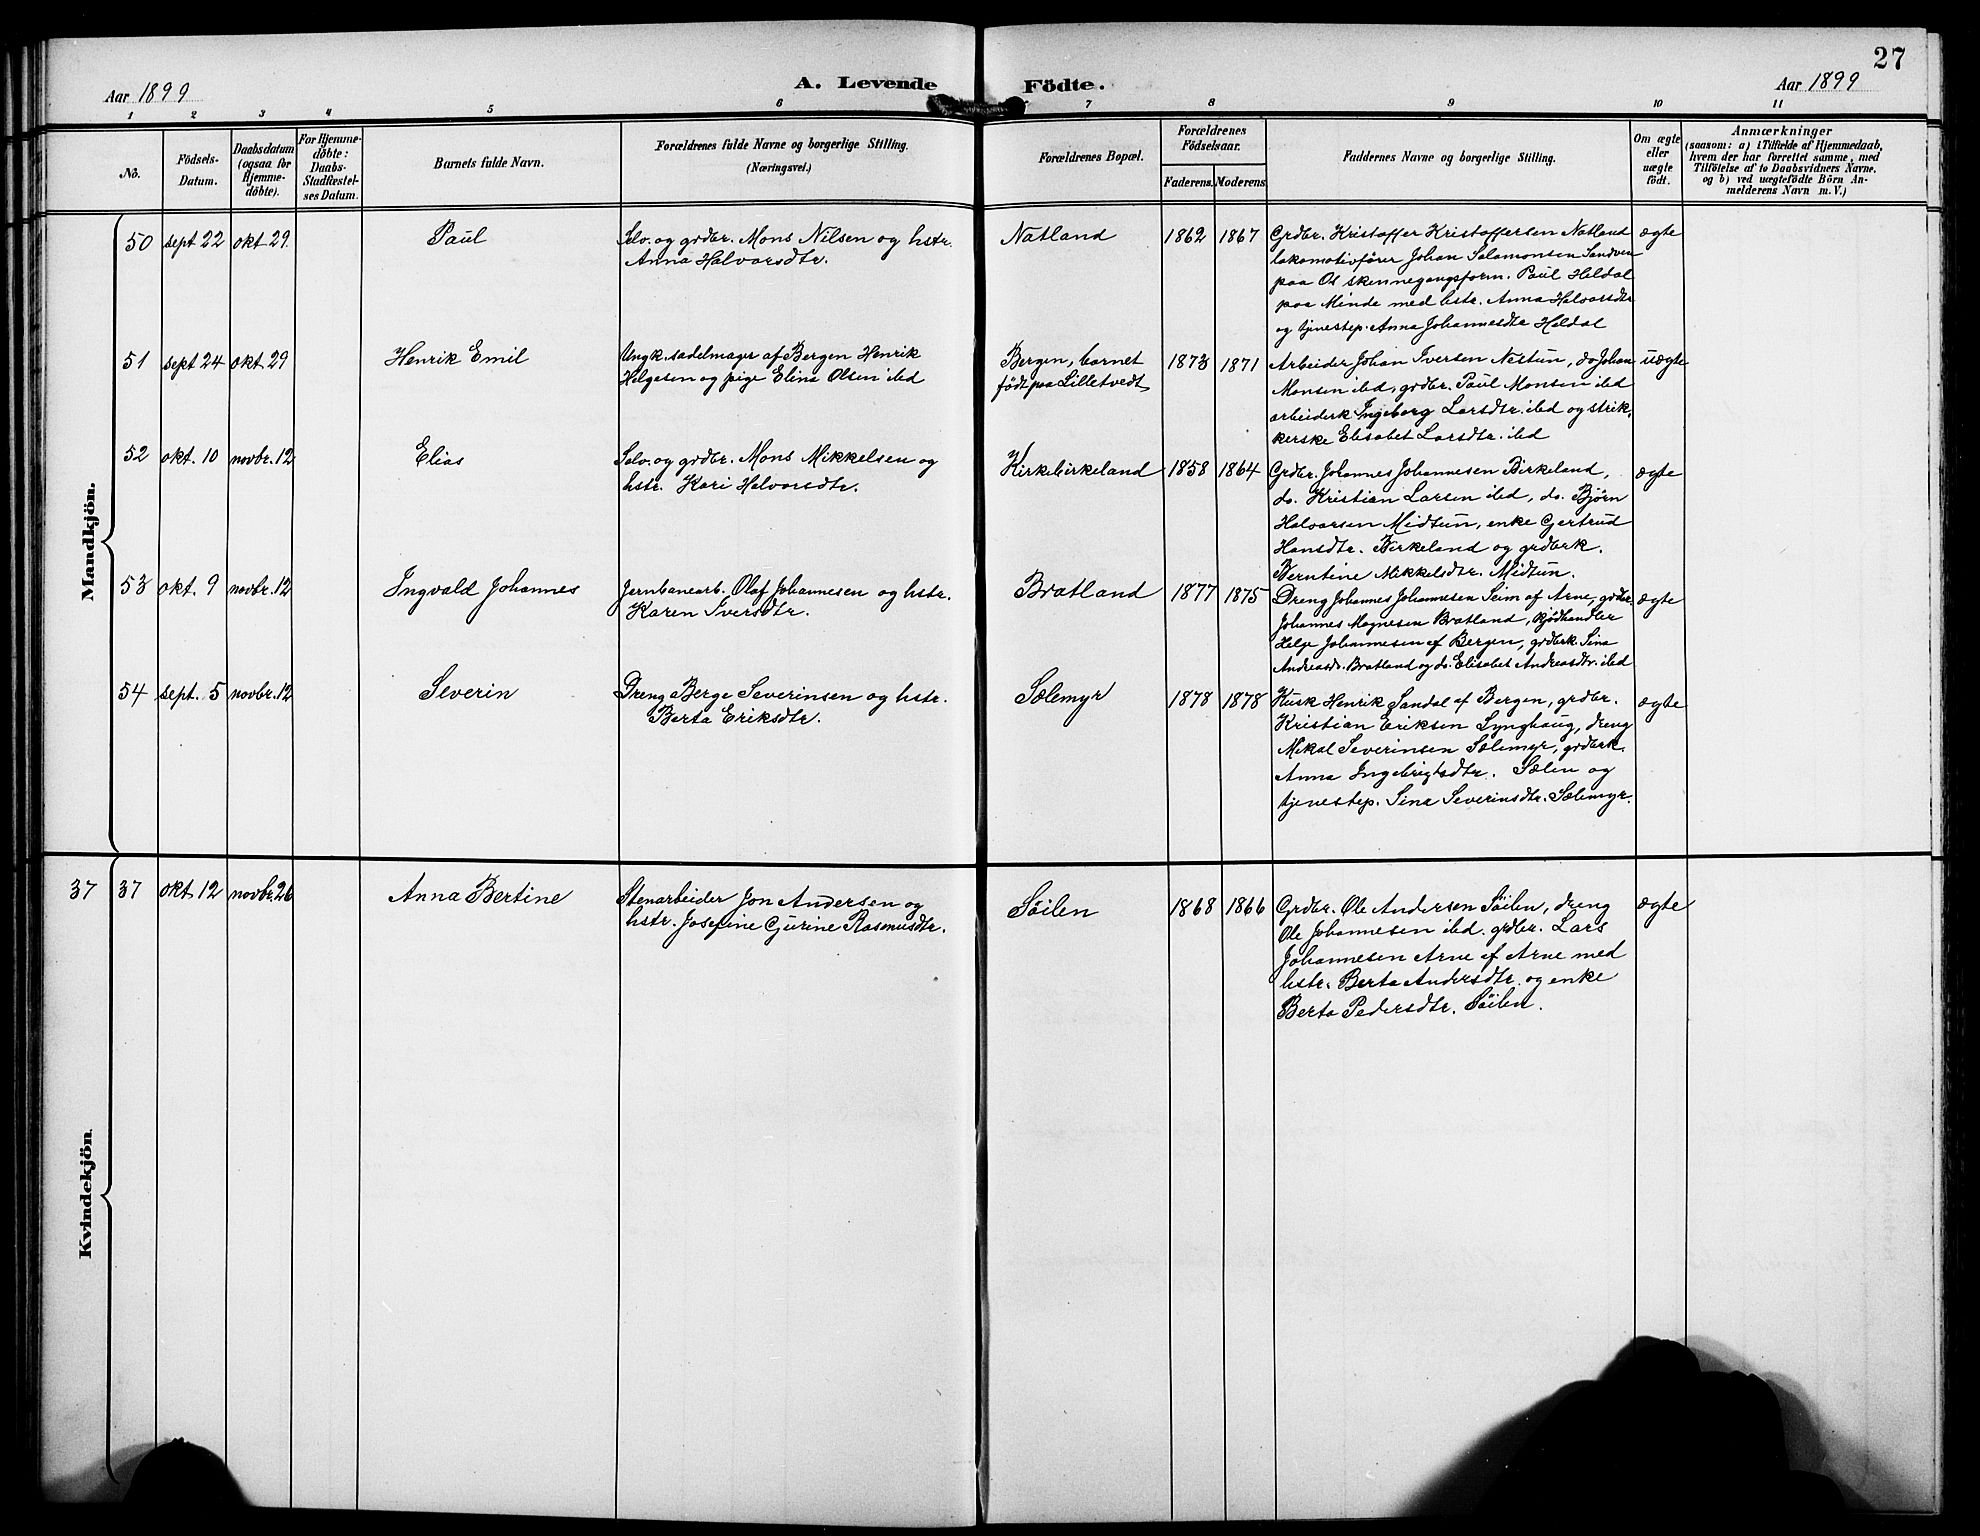 27
Aar 1899
A. Levende Födte.
Aar 1899
1 2 3 4 5 6 7 8 9 10 11
No.
Födsels-
Datum.
Daabsdatum
(ogsaa for
Hjemme-
döbte).
For Hjemme-
döbte:
Daabs-
Stadfæstel-
ses Datum.
Barnets fulde Navn.
Forældrenes fulde Navne og borgerlige Stilling.
(Næringsvei.)
Forældrenes Bopæl.
Forældrenes
Födselsaar.
Faderens. Moderens.
Faddernes Navne og borgerlige Stilling.
Om ægte
eller
uægte
födt.
Anmærkninger
(saasom: a) i Tilfælde af Hjemmedaab,
hvem der har forrettet samme, med
Tilföielse af to Daabsvidners Navne.
og b) ved uægtefödte Börn An-
melderens Navn m. V.)
Mandkjön.
50 sept 22 okt 29. Paul
Selv. og grdbr. Mons Nilsen og hstr.
Anna Halvorsdtr.
Natland 1862 1867
Grdbr. Kristoffer Kristoffersen Natland
lokomotivfører Johan Salamonsen Sandven
paa Os skinnegangsform. Paul Heldal
paa Minde med hstr. Anna Halvorsdtr
og tjenestep. Anna Johannesdtr Heldal
ægte
51 sept 24 okt 29 Henrik Emil
Ungk. sadelmager af Bergen Henrik
Helgesen og pige Elina Olsen ibd
Bergen, barnet
født paa Lilletvedt
1873 1871
Arbeider Johan Iversen Nestun, do Johan
Monsen ibd, grdbr. Paul Monsen ibd
arbeiderk Ingeborg Larsdtr. ibd og strik-
kerske Elisabet Larsdtr. ibd
uægte
52 okt. 10 novbr. 12 Elias
Selv. og grdbr. Mons Mikkelsen og
hstr. Kari Halvorsdtr.
Kirkebirkeland 1858 1864
Grdbr. Johannes Johannesen Birkeland,
do. Kristian Larsen ibd, do. Bjørn
Halvorsen Midtun, enke Gertrud
Hansdtr. Birkeland og grdbrk.
Berntine Mikkelsdtr. Midtun.
ægte
53 okt. 9 novbr. 12 Ingvald Johannes
Jernbanearb. Olaf Johannesen og hstr.
Karen Iversdtr.
Bratland 1877 1875
Dreng Johannes Johannesen Seim af Arne, grdbr.
Johannes Magnesen Bratland, kjødhandler
Helge Johannesen af Bergen, grdbrk Sina
Andreasdr. Bratland og do. Elisabet Andreasdtr. ibd
ægte
54 sept. 5 novbr. 12 Severin
Dreng Berge Severinsen og hstr.
Berta Eriksdtr.
Sælemyr 1878 1878
Kusk Henrik Sandal af Bergen, grdbr.
Kristian Eriksen Lynghaug, dreng
Mikal Severinsen Sælemyr, grdbrk.
Anna Ingebrigtsdtr. Sælen og
tjenestep. Sina Severinsdtr. Sælemyr.
ægte
Kvindekjön.
37 37 okt 12 novbr. 26 Anna Bertine
Stenarbeider Jon Andersen og
hstr. Josefine Gurine Rasmusdtr.
Søilen 1868 1866
Grdbr. Ole Andersen Søilen, dreng
Ole Johannesen ibd. grdbr. Lars
Johannesen Arne af Arne med
hstr. Berta Andersdtr. og enke
Berta Pedersdtr. Søilen.
ægte